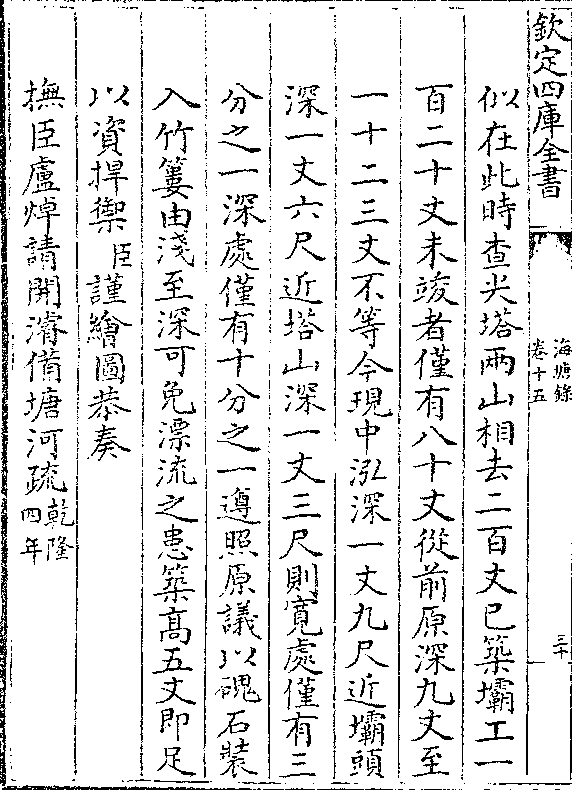 欽定四庫全書
海塘錄
卷十五
三十
似在此時查尖塔兩山相去二百丈已築壩工一
百二十丈未竣者僅有八十丈從前原深九丈至
一十二三丈不等今現中泓深一丈九尺近壩頭
深一丈六尺近塔山深一丈三尺則寛處僅有三
分之一深處僅有十分之一遵照原議以磈石裝
入竹簍由淺至深可免漂流之患築髙五丈即足
以資捍禦臣謹繪圖恭奏
撫臣盧焯請開濬備塘河疏乾隆四年